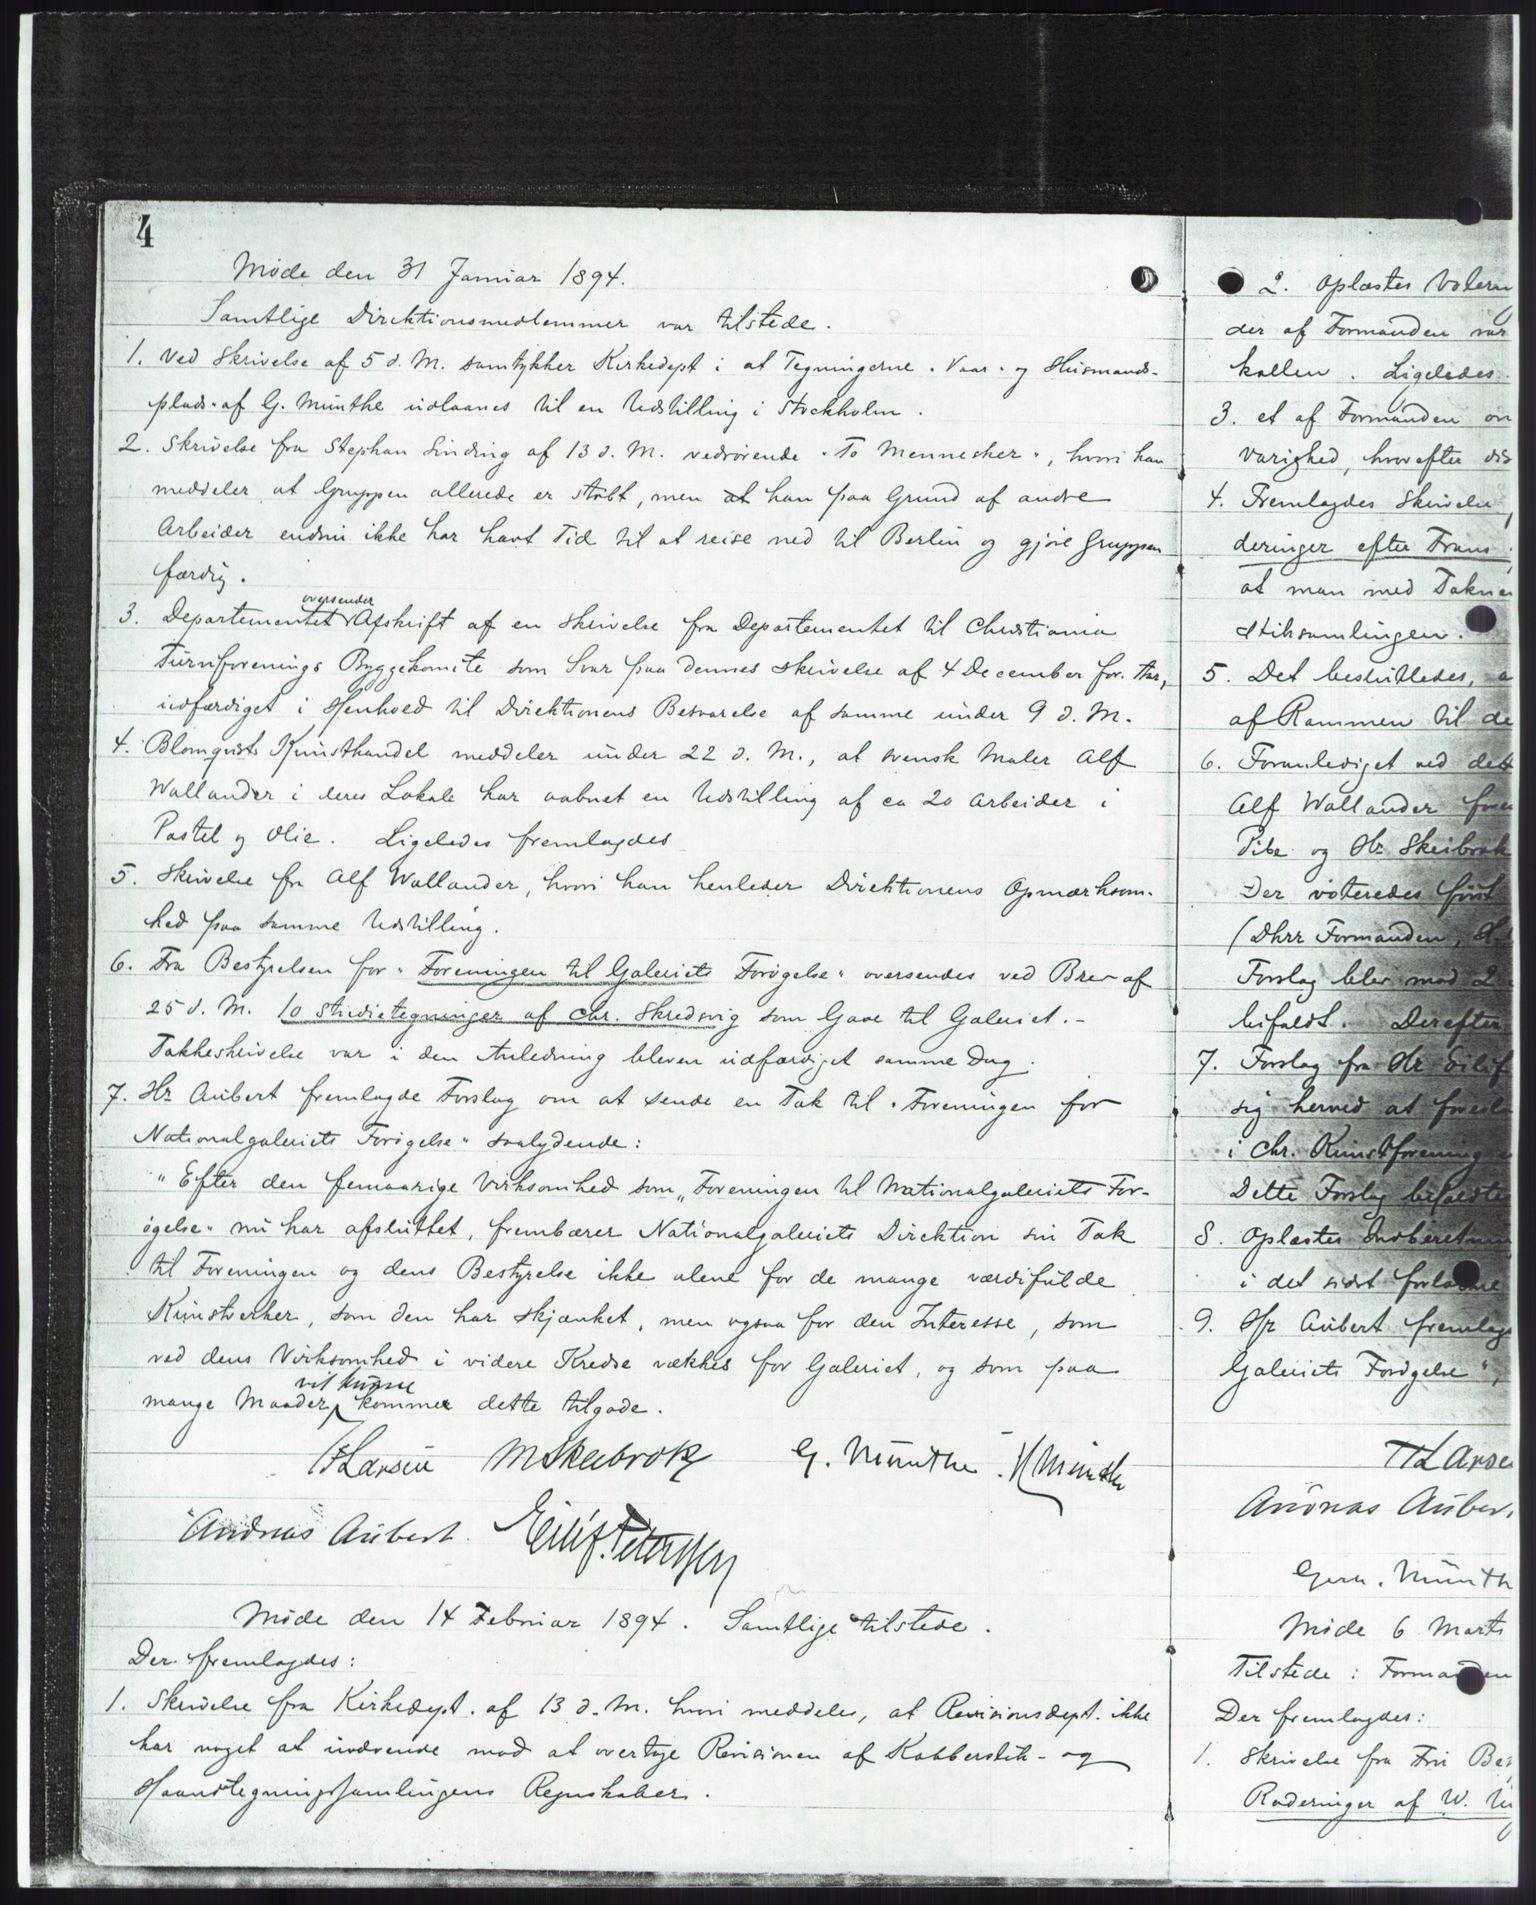 4
Møde den 31 Januar 1894.
Samtlige Direktionsmedlemmer var tilstede.
1. Ved Skrivelse af 5 d. M. samtykker Kirkedept i at Tegningerne "Vaar" og Husmands-
plads" af G. Munthe udlaanes til en Udstilling i Stockholm.
2. Skrivelse fra Stephan Sinding af 13 d. M. vedrørende "To Mennesker", hvori han
meddeler at Gruppen allerede er støbt, men at han paa Grund af andre
Arbeider endnu ikke har havt Tid til at reise ned til Berlin og gjøre Gruppen
færdig.
oversender
3. Departementet Afskrift af en Skrivelse fra Departementet til Christiania
Turnforenings Byggekomite som Svar paa dennes Skrivelse af 4 December for. Aar,
udfærdiget i Henhold til Direktionens Besvarelse af samme under 9 d. M.
4. Blomqvists Kunsthandel meddeler under 22 d. M., at svensk Maler Alf
Wallander i deres Lokale har aabnet en Udstilling af ca 20 Arbeider i
Pastel og Olie. Ligeledes fremlagdes
5. Skrivelse fra Alf Wallander, hvori han henleder Direktionens Opmærksom-
hed paa samme Udstilling.
6. Fra Bestyrelsen for "Foreningen til Galeriets Forøgelse" oversendes ved Brev af
25 d. M. 10 Studietegninger af Chr. Skredsvig som Gave til Galeriet. -
Takkeskrivelse var i den Anledning bleven udfærdiget samme Dag.
7. Hr Aubert fremlagde Forslag om at sende en Tak til "Foreningen for
Nationalgaleriets Forøgelse" saalydende:
"Efter den femaarige Virksomhed som "Foreningen til Nationalgaleriets For-
øgelse" nu har afsluttet, frembærer Nationalgaleriets Direktion sin Tak
til Foreningen og dens Bestyrelse ikke alene for de mange værdifulde
Kunstverker, som den har skjænket, men ogsaa for den Interesse, som
ved dens Virksomhed i videre Kredse vækkes for Galeriet, og som paa
vil kunne
mange Maader kommer dette tilgode.
HLarsen MSkeibrok G. Munthe. H Munthe
Andreas Aubert. Eilif Peterssen
Møde den 14 Februar 1894. Samtlige tilstede.
Der fremlagdes:
1. Skrivelse fra Kirkedept. af 13 d. M. hvori meddeles, at Revisionsdept. ikke
har noget at indvende mod at overtage Revisionen af Kobberstik- og
Haandtegningssamlingens Regnskaber.
2. Oplæstes
der af Formanden var
kallen. Ligeledes
3. et af Formanden
Varighed, hvorefter
4. Fremlagdes Skrivelse
deringer efter Frans
at man med
stiksamlingen.
5. Det besluttedes, a
af Rammen til de
6. Foranlediget ved det
Alf Wallander
Pibe og Hr Skeibrok
Der voteredes først
(Dhrr Formanden,
Forslag blev mod 2
bifaldt. Derefter
7. Forslag fra Hr Eilif
sig herved at
i Chr. Kunstforening
Dette Forslag bifaldtes
8. Oplæstes
i det sidst
9. Hr Aubert fremlag
Galeriets Forøgelse",
HLarse
Andreas Auber
Gerh. Munth
Møde 6 Marts
Tilstede: Formanden
Der fremlagdes:
1. Skrivelse fra Fru
Raderinger af W.